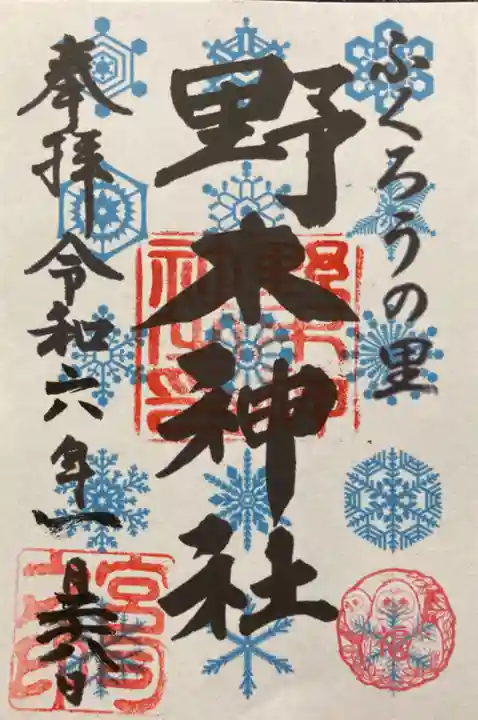 ふくろうの里
野木神社
奉拝 令和六年一月八日
宮司之印
福